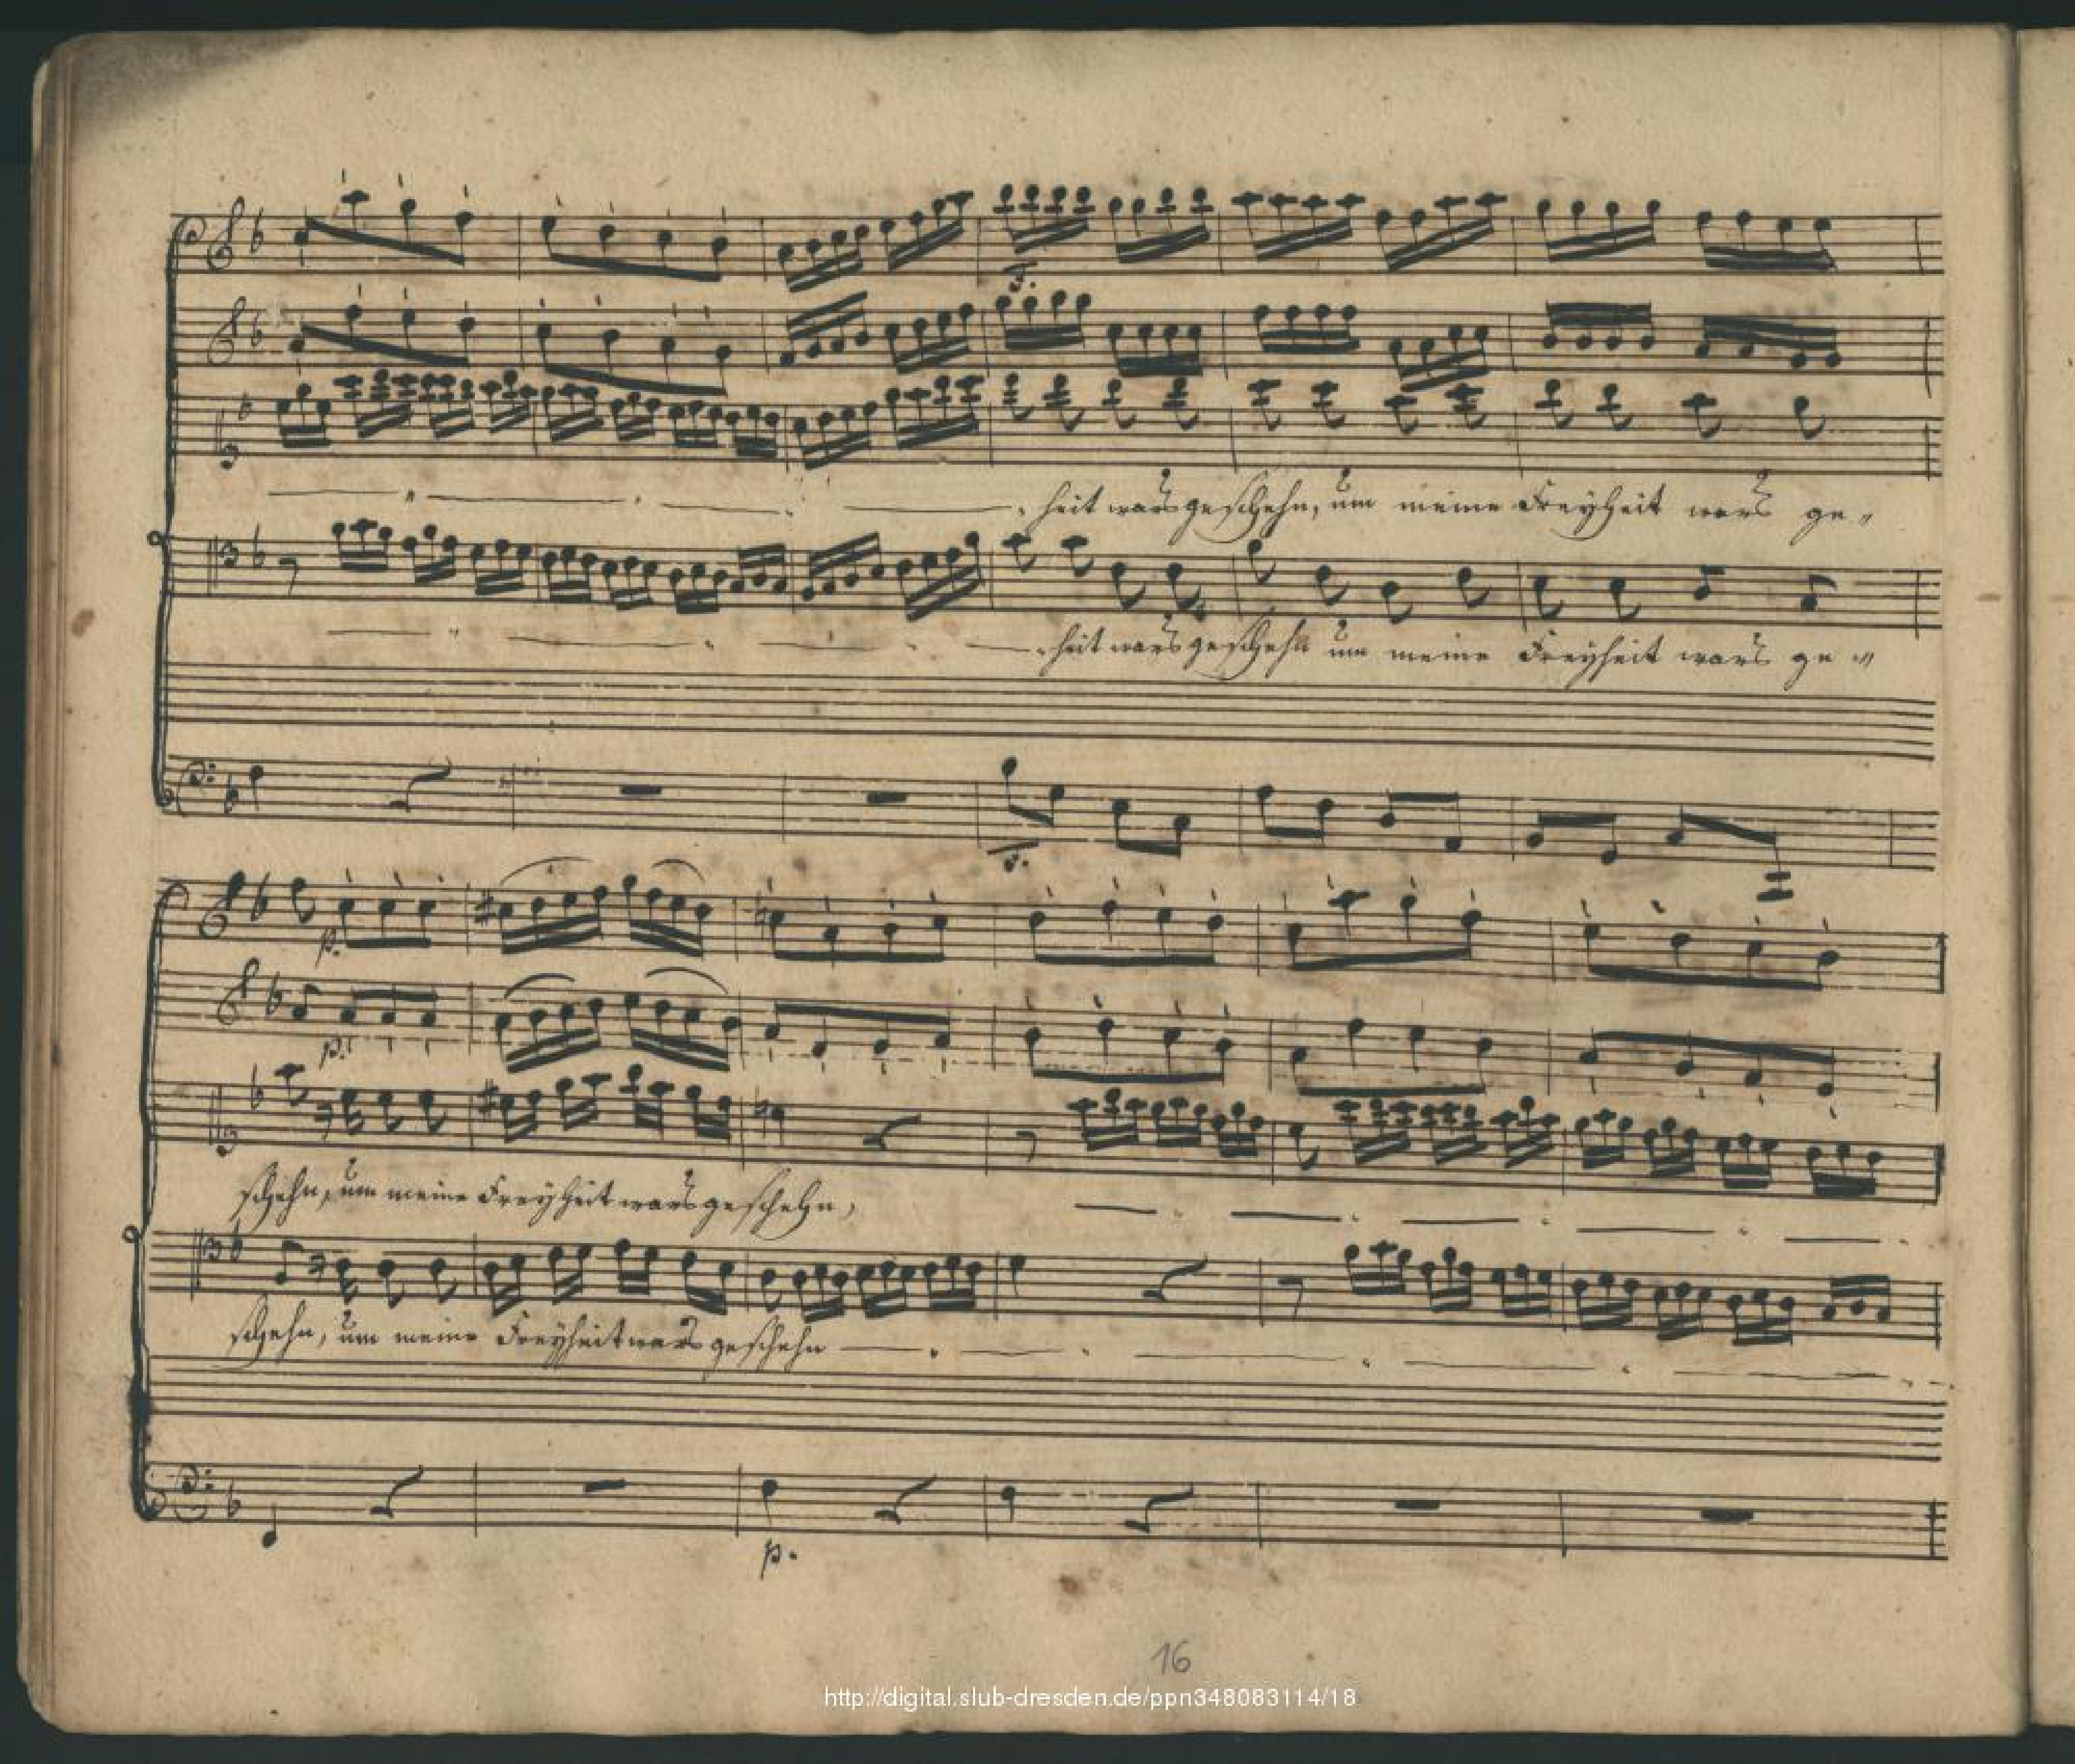 F.
heit wars geschehn, um meine Freyheit wars ge„
heit wars geschehn um meine Freyheit wars ge„
p.
p.
schehn, um meine Freyheit wars geschehn,
schehn, um meine Freyheit wars geschehn
p.
16
http://digital.slub-dresden.de/ppn348083114/18